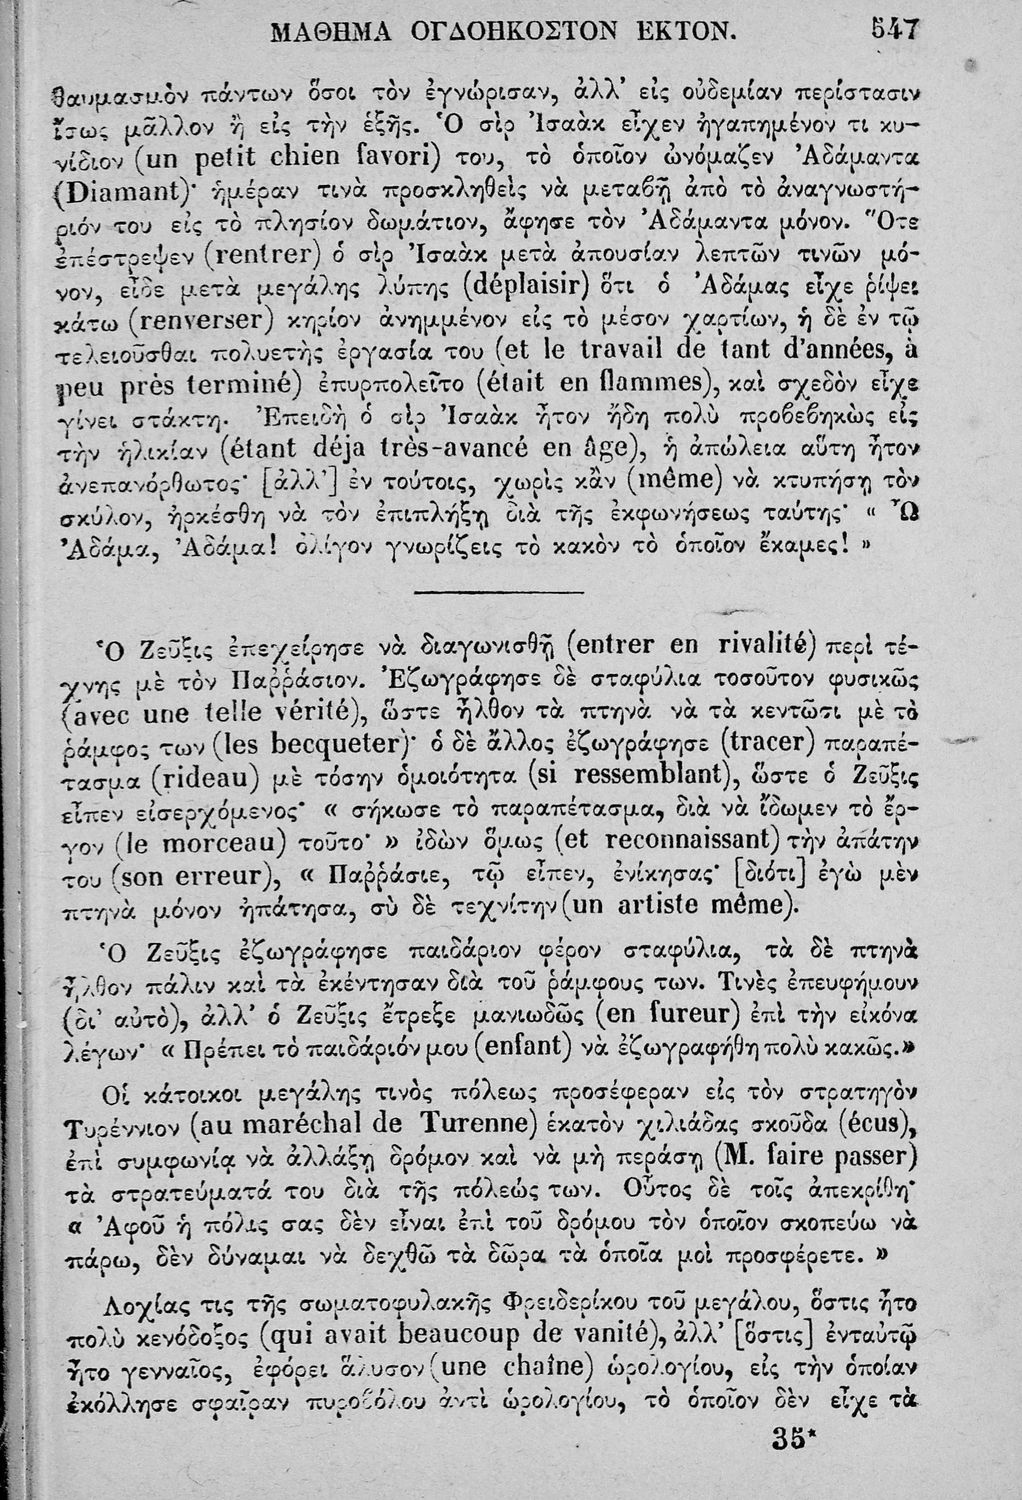 ΜΑΘΗΜΑ ΟΓΔΟΗΚΟΣΤΟΝ ΕΚΤΟΝ. 547
θαυμασμὸν πάντων ὅσοι τὸν ἐγνώρισαν, ἀλλ' εἰς οὐδεμίαν περίστασιν
ἴσως μᾶλλον ἢ εἰς τὴν ἑξῆς. Ὁ σὶρ Ἰσαὰκ εἶχεν ἠγαπημένον τι κυ-
νίδιον (un petit chien favori) του, τὸ ὁποῖον ὠνόμαζεν Ἀδάμαντα
(Diamant)· ἡμέραν τινὰ προσκληθεὶς νὰ μεταβῇ ἀπὸ τὸ ἀναγνωστή-
ριόν του εἰς τὸ πλησίον δωμάτιον, ἄφησε τὸν Ἀδάμαντα μόνον. Ὅτε
ἐπέστρεψεν (rentrer) ὁ σὶρ Ἰσαὰκ μετὰ ἀπουσίαν λεπτῶν τινῶν μό-
νον, εἶδε μετὰ μεγάλης λύπης (déplaisir) ὅτι ὁ Ἀδάμας εἶχε ῥίψει
κάτω (renverser) κηρίον ἀνημμένον εἰς τὸ μέσον χαρτίων, ἡ δὲ ἐν τῷ
τελειοῦσθαι πολυετὴς ἐργασία του (et le travail de tant d'années, à
peu près terminé) ἐπυρπολεῖτο (était en flammes), καὶ σχεδὸν εἶχε
γίνει στάκτη. Ἐπειδὴ ὁ σὶρ Ἰσαὰκ ἦτον ἤδη πολὺ προβεβηκὼς εἰς
τὴν ἡλικίαν (étant déja très-avancé en âge), ἡ ἀπώλεια αὕτη ἦτον
ἀνεπανόρθωτος· [ἀλλ'] ἐν τούτοις, χωρὶς κἂν (même) νὰ κτυπήσῃ τὸν
σκύλον, ἠρκέσθη νὰ τὸν ἐπιπλήξῃ διὰ τῆς ἐκφωνήσεως ταύτης· « Ὦ
Ἀδάμα, Ἀδάμα! ὀλίγον γνωρίζεις τὸ κακὸν τὸ ὁποῖον ἔκαμες! »
Ὁ Ζεῦξις ἐπεχείρησε νὰ διαγωνισθῇ (entrer en rivalité) περὶ τέ-
χνης μὲ τὸν Παῤῥάσιον. Ἐζωγράφησε δὲ σταφύλια τοσοῦτον φυσικῶς
(avec une telle vérité), ὥστε ἦλθον τὰ πτηνὰ νὰ τὰ κεντῶσι μὲ τὸ
ῥάμφος των (les becqueter)· ὁ δὲ ἄλλος ἐζωγράφησε (tracer) παραπέ-
τασμα (rideau) μὲ τόσην ὁμοιότητα (si ressemblant), ὥστε ὁ Ζεῦξις
εἶπεν εἰσερχόμενος· « σήκωσε τὸ παραπέτασμα, διὰ νὰ ἴδωμεν τὸ ἔρ-
γον (le morceau) τοῦτο· » ἰδὼν ὅμως (et reconnaissant) τὴν ἀπάτην
του (son erreur), « Παῤῥάσιε, τῷ εἶπεν, ἐνίκησας· [διότι] ἐγὼ μὲν
πτηνὰ μόνον ἠπάτησα, σὺ δὲ τεχνίτην (un artiste même).
Ὁ Ζεῦξις ἐζωγράφησε παιδάριον φέρον σταφύλια, τὰ δὲ πτηνὰ
ἦλθον πάλιν καὶ τὰ ἐκέντησαν διὰ τοῦ ῥάμφους των. Τινὲς ἐπευφήμουν
(δι' αὐτὸ), ἀλλ' ὁ Ζεῦξις ἔτρεξε μανιωδῶς (en fureur) ἐπὶ τὴν εἰκόνα
λέγων· « Πρέπει τὸ παιδάριόν μου (enfant) νὰ ἐζωγραφήθη πολὺ κακῶς.»
Οἱ κάτοικοι μεγάλης τινὸς πόλεως προσέφεραν εἰς τὸν στρατηγὸν
Τυρέννιον (au maréchal de Turenne) ἑκατὸν χιλιάδας σκοῦδα (écus),
ἐπὶ συμφωνίᾳ νὰ ἀλλάξῃ δρόμον καὶ νὰ μὴ περάσῃ (M. faire passer)
τὰ στρατεύματά του διὰ τῆς πόλεώς των. Οὗτος δὲ τοῖς ἀπεκρίθη·
« Ἀφοῦ ἡ πόλις σας δὲν εἶναι ἐπὶ τοῦ δρόμου τὸν ὁποῖον σκοπεύω νὰ
πάρω, δὲν δύναμαι νὰ δεχθῶ τὰ δῶρα τὰ ὁποῖα μοὶ προσφέρετε. »
Λοχίας τις τῆς σωματοφυλακῆς Φρειδερίκου τοῦ μεγάλου, ὅστις ἦτο
πολὺ κενόδοξος (qui avait beaucoup de vanité), ἀλλ' [ὅστις] ἐνταὐτῷ
ἦτο γενναῖος, ἐφόρει ἅλυσον (une chaîne) ὡρολογίου, εἰς τὴν ὁποίαν
ἐκόλλησε σφαῖραν πυροβόλου ἀντὶ ὡρολογίου, τὸ ὁποῖον δὲν εἶχε τὰ
35*